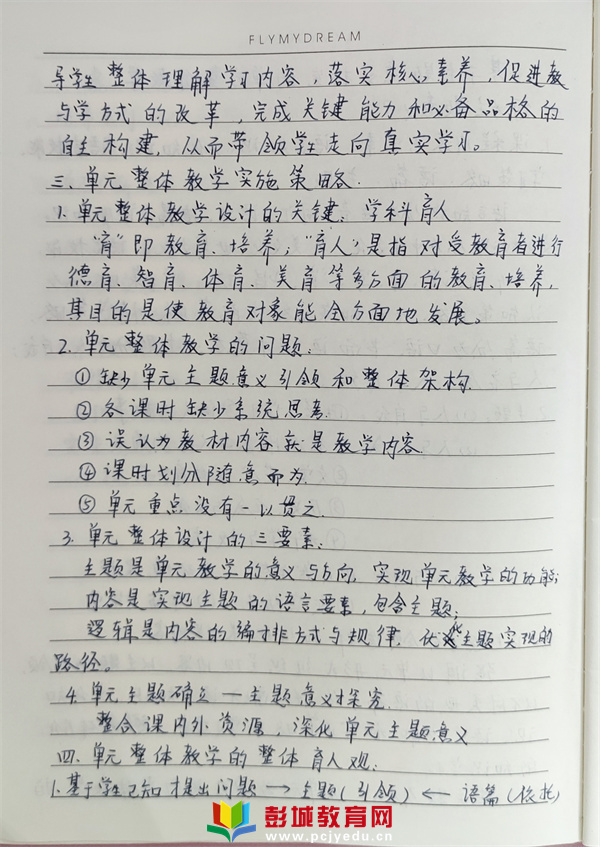 FLYMYDREAM
导学生整体理解学习内容，落实核心素养，促进教
与学方式的改革，完成关键能力和必备品格的
自主构建，从而带领学生走向真实学习。
三、单元整体教学实施策略.
1. 单元整体教学设计的关键：学科育人
"育"即教育、培养；"育人"是指对受教育者进行
德育、智育、体育、美育等多方面的教育、培养，
其目的是使教育对象能全方面地发展。
2. 单元整体教学的问题：
① 缺少单元主题意义引领和整体架构.
② 各课时缺少系统思考.
③ 误认为教材内容就是教学内容.
④ 课时划分随意而为.
⑤ 单元重点没有一以贯之.
3. 单元整体设计的三要素：
主题是单元教学的意义与方向，实现单元教学的功能；
内容是实现主题的语言要素，包含主题；
逻辑是内容的编排方式与规律，优化主题实现的
路径。
4. 单元主题确立—主题意义探究.
整合课内外资源，深化单元主题意义
四、单元整体教学的整体育人观：
1. 基于学生已知提出问题 → 主题(引领) ← 语篇(依托)
彭城教育网
www.pcjyedu.cn